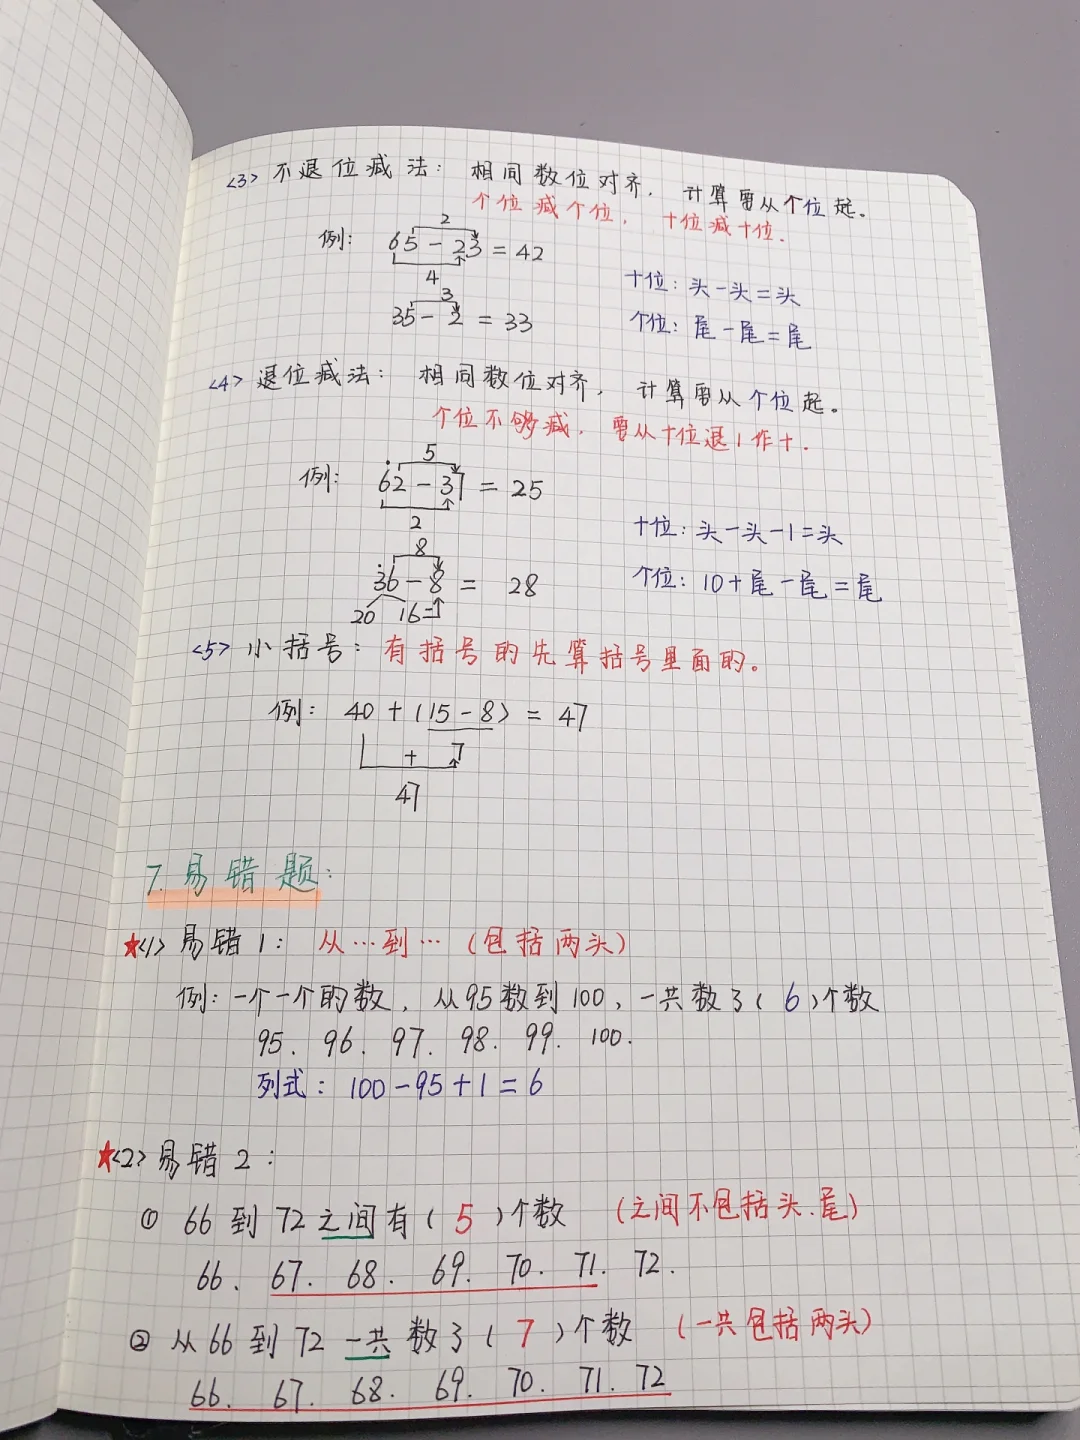 <3> 不退位减法： 相同数位对齐， 计算需从个位起。
个位减个位， 十位减十位.
2
例： 65 - 23 = 42
4
十位：头-头=头
3
35 - 2 = 33
个位：尾-尾=尾
<4> 退位减法： 相同数位对齐， 计算需从个位起。
个位不够减， 需从十位退1作十.
5
例： 62 - 37 = 25
2
十位：头-头-1=头
8
36 - 8 = 28
个位：10+尾-尾=尾
20 16
<5> 小括号： 有括号的先算括号里面的。
例： 40 + (15-8) = 47
+ 7
47
7. 易错题：
★<1> 易错1： 从…到… (包括两头)
例：一个一个的数，从95数到100，一共数了( 6 )个数
95. 96. 97. 98. 99. 100.
列式： 100-95+1=6
★<2> 易错2：
① 66到72之间有( 5 )个数 (之间不包括头.尾)
66. 67. 68. 69. 70. 71. 72.
② 从66到72一共数了( 7 )个数 (一共包括两头)
66. 67. 68. 69. 70. 71. 72